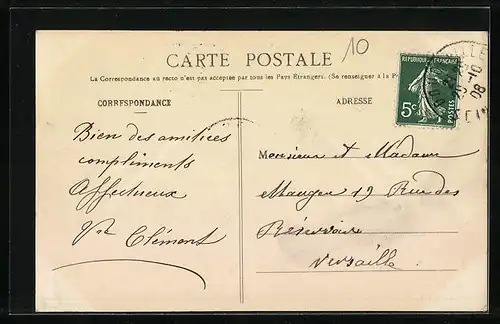 CARTE POSTALE
10
La Correspondance au recto n'est pas acceptée par tous les Pays Étrangers. (Se renseigner à la
CORRESPONDANCE
ADRESSE
REPUBLIQUE FRANÇAISE
5c
POSTES
25-10
08
Bien des amitiées
compliments
Affectueux
Clément
Monsieur et Madame
Mauger 19 Rue des
Réservoirs
Versaille